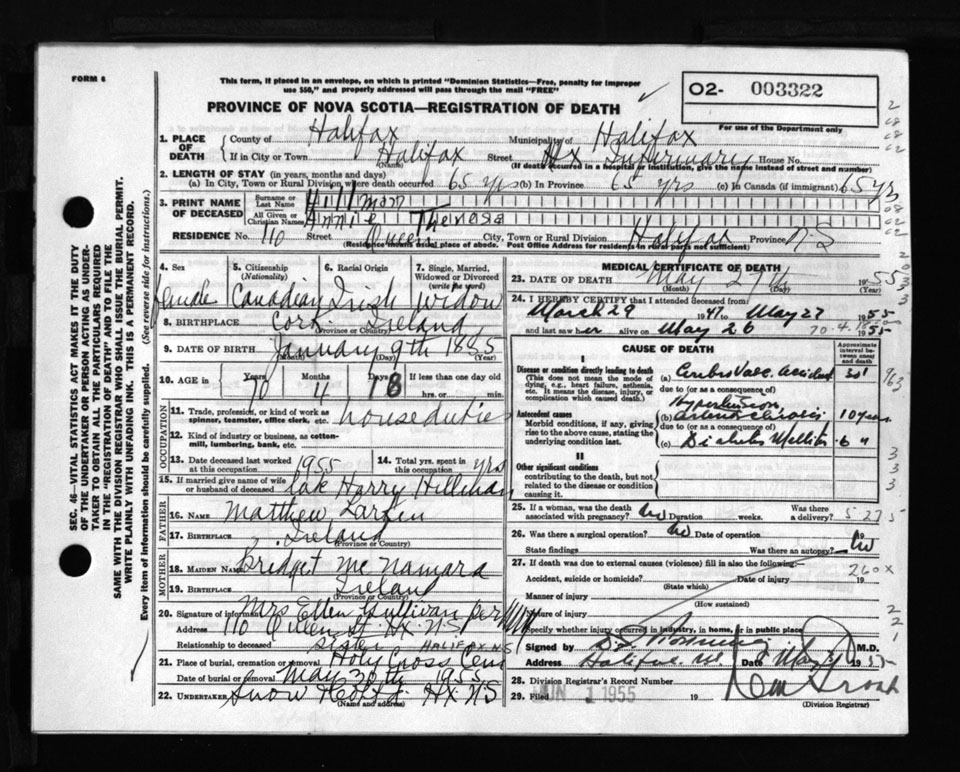 FORM 6
This form, if placed in an envelope, on which is printed "Dominion Statistics—Free, penalty for improper
use $50," and properly addressed will pass through the mail "FREE"
PROVINCE OF NOVA SCOTIA—REGISTRATION OF DEATH
O2- 003322
For use of the Department only
SEC. 46—VITAL STATISTICS ACT MAKES IT THE DUTY
OF THE UNDERTAKER OR PERSON ACTING AS UNDER-
TAKER TO OBTAIN ALL THE PARTICULARS REQUIRED
IN THE "REGISTRATION OF DEATH" AND TO FILE THE
SAME WITH THE DIVISION REGISTRAR WHO SHALL ISSUE THE BURIAL PERMIT.
WRITE PLAINLY WITH UNFADING INK. THIS IS A PERMANENT RECORD.
Every item of information should be carefully supplied. (See reverse side for instructions.)
1. PLACE OF DEATH { County of Halifax Municipality of Halifax
If in City or Town Halifax Street Hx Infirmary House No.
(Name) (If death occurred in a hospital or institution, give the name instead of street and number)
2. LENGTH OF STAY (in years, months and days)
(a) In City, Town or Rural Division where death occurred 65 yrs (b) In Province 65 yrs (c) In Canada (if immigrant) 65 yrs
3. PRINT NAME OF DECEASED { Surname or Last Name Hillman
All Given or Christian Names Annie Theresa
RESIDENCE No. 110 Street Queen City, Town or Rural Division Halifax Province N S
(Residence means usual place of abode. Post Office Address for residents in rural parts not sufficient)
4. Sex 5. Citizenship (Nationality) 6. Racial Origin 7. Single, Married, Widowed or Divorced (write the word)
female Canadian Irish widow
8. BIRTHPLACE Cork Ireland
(Province or Country)
9. DATE OF BIRTH January 9th 1885
(Month) (Day) (Year)
10. AGE in { Years Months Days If less than one day
70 4 18 hrs. or min.
OCCUPATION
11. Trade, profession, or kind of work as spinner, teamster, office clerk, etc. house duties
12. Kind of industry or business, as cotton-mill, lumbering, bank, etc.
13. Date deceased last worked at this occupation 1955 14. Total yrs. spent in this occupation yrs
15. If married give name of wife or husband of deceased late Harry Hillman
FATHER
16. NAME Matthew Larkin
17. BIRTHPLACE Ireland
(Province or Country)
MOTHER
18. MAIDEN NAME Bridget McNamara
19. BIRTHPLACE Ireland
(Province or Country)
20. Signature of informant Mrs Ellen Sullivan per
Address 110 Queen St. Hx. N.S.
Relationship to deceased sister HALIFAX N S
21. Place of burial, cremation or removal Holy Cross Cem
Date of burial or removal May 30th 1955
22. UNDERTAKER Snow & Co Ltd. Hx N S
(Name and Address)
MEDICAL CERTIFICATE OF DEATH
23. DATE OF DEATH May 27th 1955
(Month) (Day) (Year)
24. I HEREBY CERTIFY that I attended deceased from
March 29 1947 to May 27 1955
and last saw her alive on May 26 1955
CAUSE OF DEATH Approximate interval between onset and death
I
Disease or condition directly leading to death
(This does not mean the mode of dying, e.g., heart failure, asthenia, etc. It means the disease, injury, or complication which caused death.)
(a) Cerebro Vasc. accident 3d
due to (or as a consequence of)
Hypertension
Antecedent causes
Morbid conditions, if any, giving rise to the above cause, stating the underlying condition last.
(b) arteriosclerosis 10 years
due to (or as a consequence of)
(c) Diabetes Mellitus 6 "
II
Other significant conditions
contributing to the death, but not related to the disease or condition causing it.
25. If a woman, was the death associated with pregnancy? No Duration weeks. Was there a delivery?
5 27 5
26. Was there a surgical operation? No Date of operation
State findings Was there an autopsy? No
27. If death was due to external causes (violence) fill in also the following:—
Accident, suicide or homicide? Date of injury 19
(State which)
260X
Manner of injury
(How sustained)
Nature of injury
Specify whether injury occurred in industry, in home, or in public place
Signed by M.D.
Address Halifax N.S. Date May 1955
28. Division Registrar's Record Number
29. Filed JUN 1 1955 19
(Division Registrar)